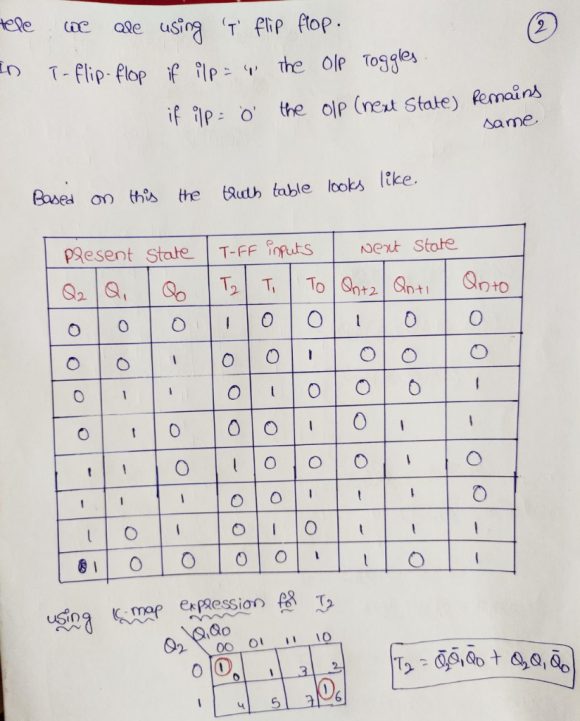 Here we are using 'T' flip flop.
2
In T-flip-flop if i/p = '1' the o/p Toggles.
if i/p = '0' the o/p (next state) Remains
same.
Based on this the truth table looks like.
Present state T-FF inputs Next state
Q2 Q1 Q0 T2 T1 T0 Qn+2 Qn+1 Qn+0
0 0 0 1 0 0 1 0 0
0 0 1 0 0 1 0 0 0
0 1 1 0 1 0 0 0 1
0 1 0 0 0 1 0 1 1
1 1 0 1 0 0 0 1 0
1 1 1 0 0 1 1 1 0
1 0 1 0 1 0 1 1 1
1 0 0 0 0 1 1 0 1
using K-map expression for T2
Q2 Q1Q0
00 01 11 10
0 1 0 1 3 2
1 4 5 7 1 6
T2 = Q̄2Q̄1Q̄0 + Q2Q1Q̄0